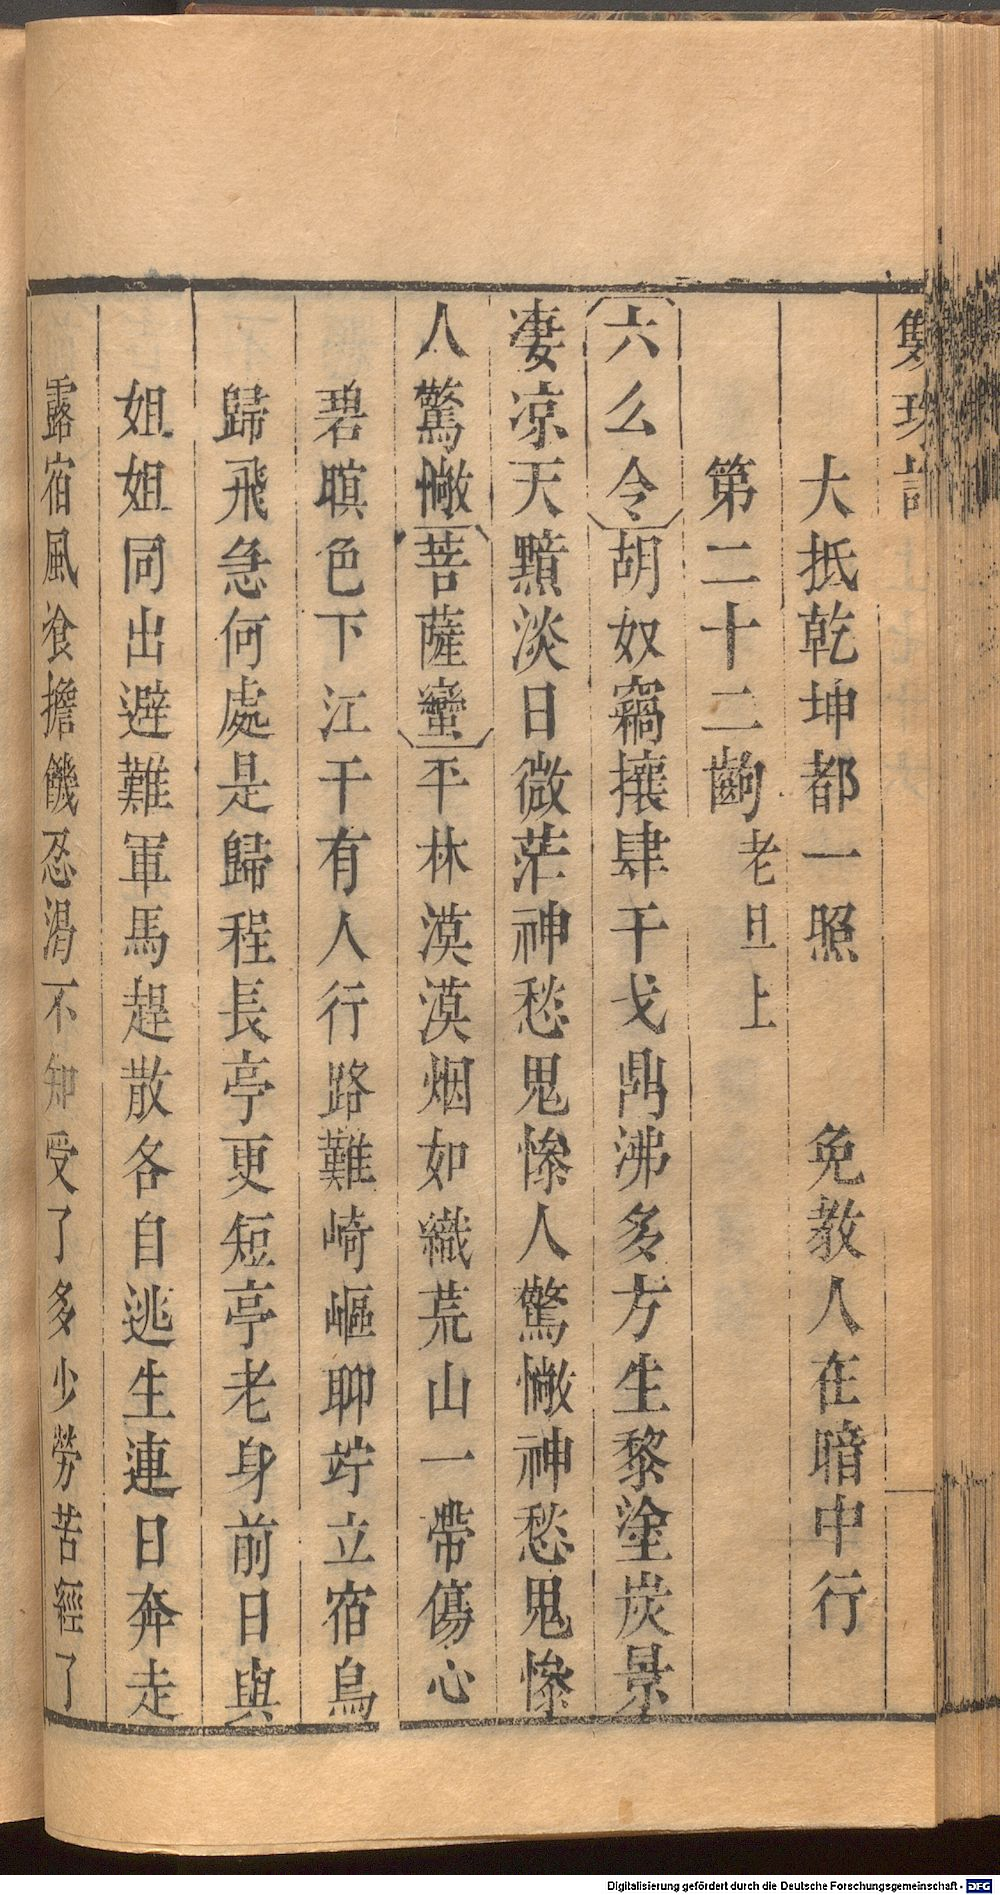 雙珠記
大抵乾坤都一照　免教人在暗中行
第二十二齣 老旦上
六么令 胡奴竊攘肆干戈鼎沸多方生黎塗炭景
凄凉天黯淡日微茫神愁鬼慘人驚憷神愁鬼慘
人驚憷 菩薩蠻 平林漠漠烟如織荒山一帶傷心
碧暝色下江干有人行路難崎嶇聊竚立宿鳥
歸飛急何處是歸程長亭更短亭老身前日與
姐姐同出避難軍馬趕散各自逃生連日奔走
露宿風飡擔饑忍渴不知受了多少勞苦經了
Digitalisierung gefördert durch die Deutsche Forschungsgemeinschaft - DFG